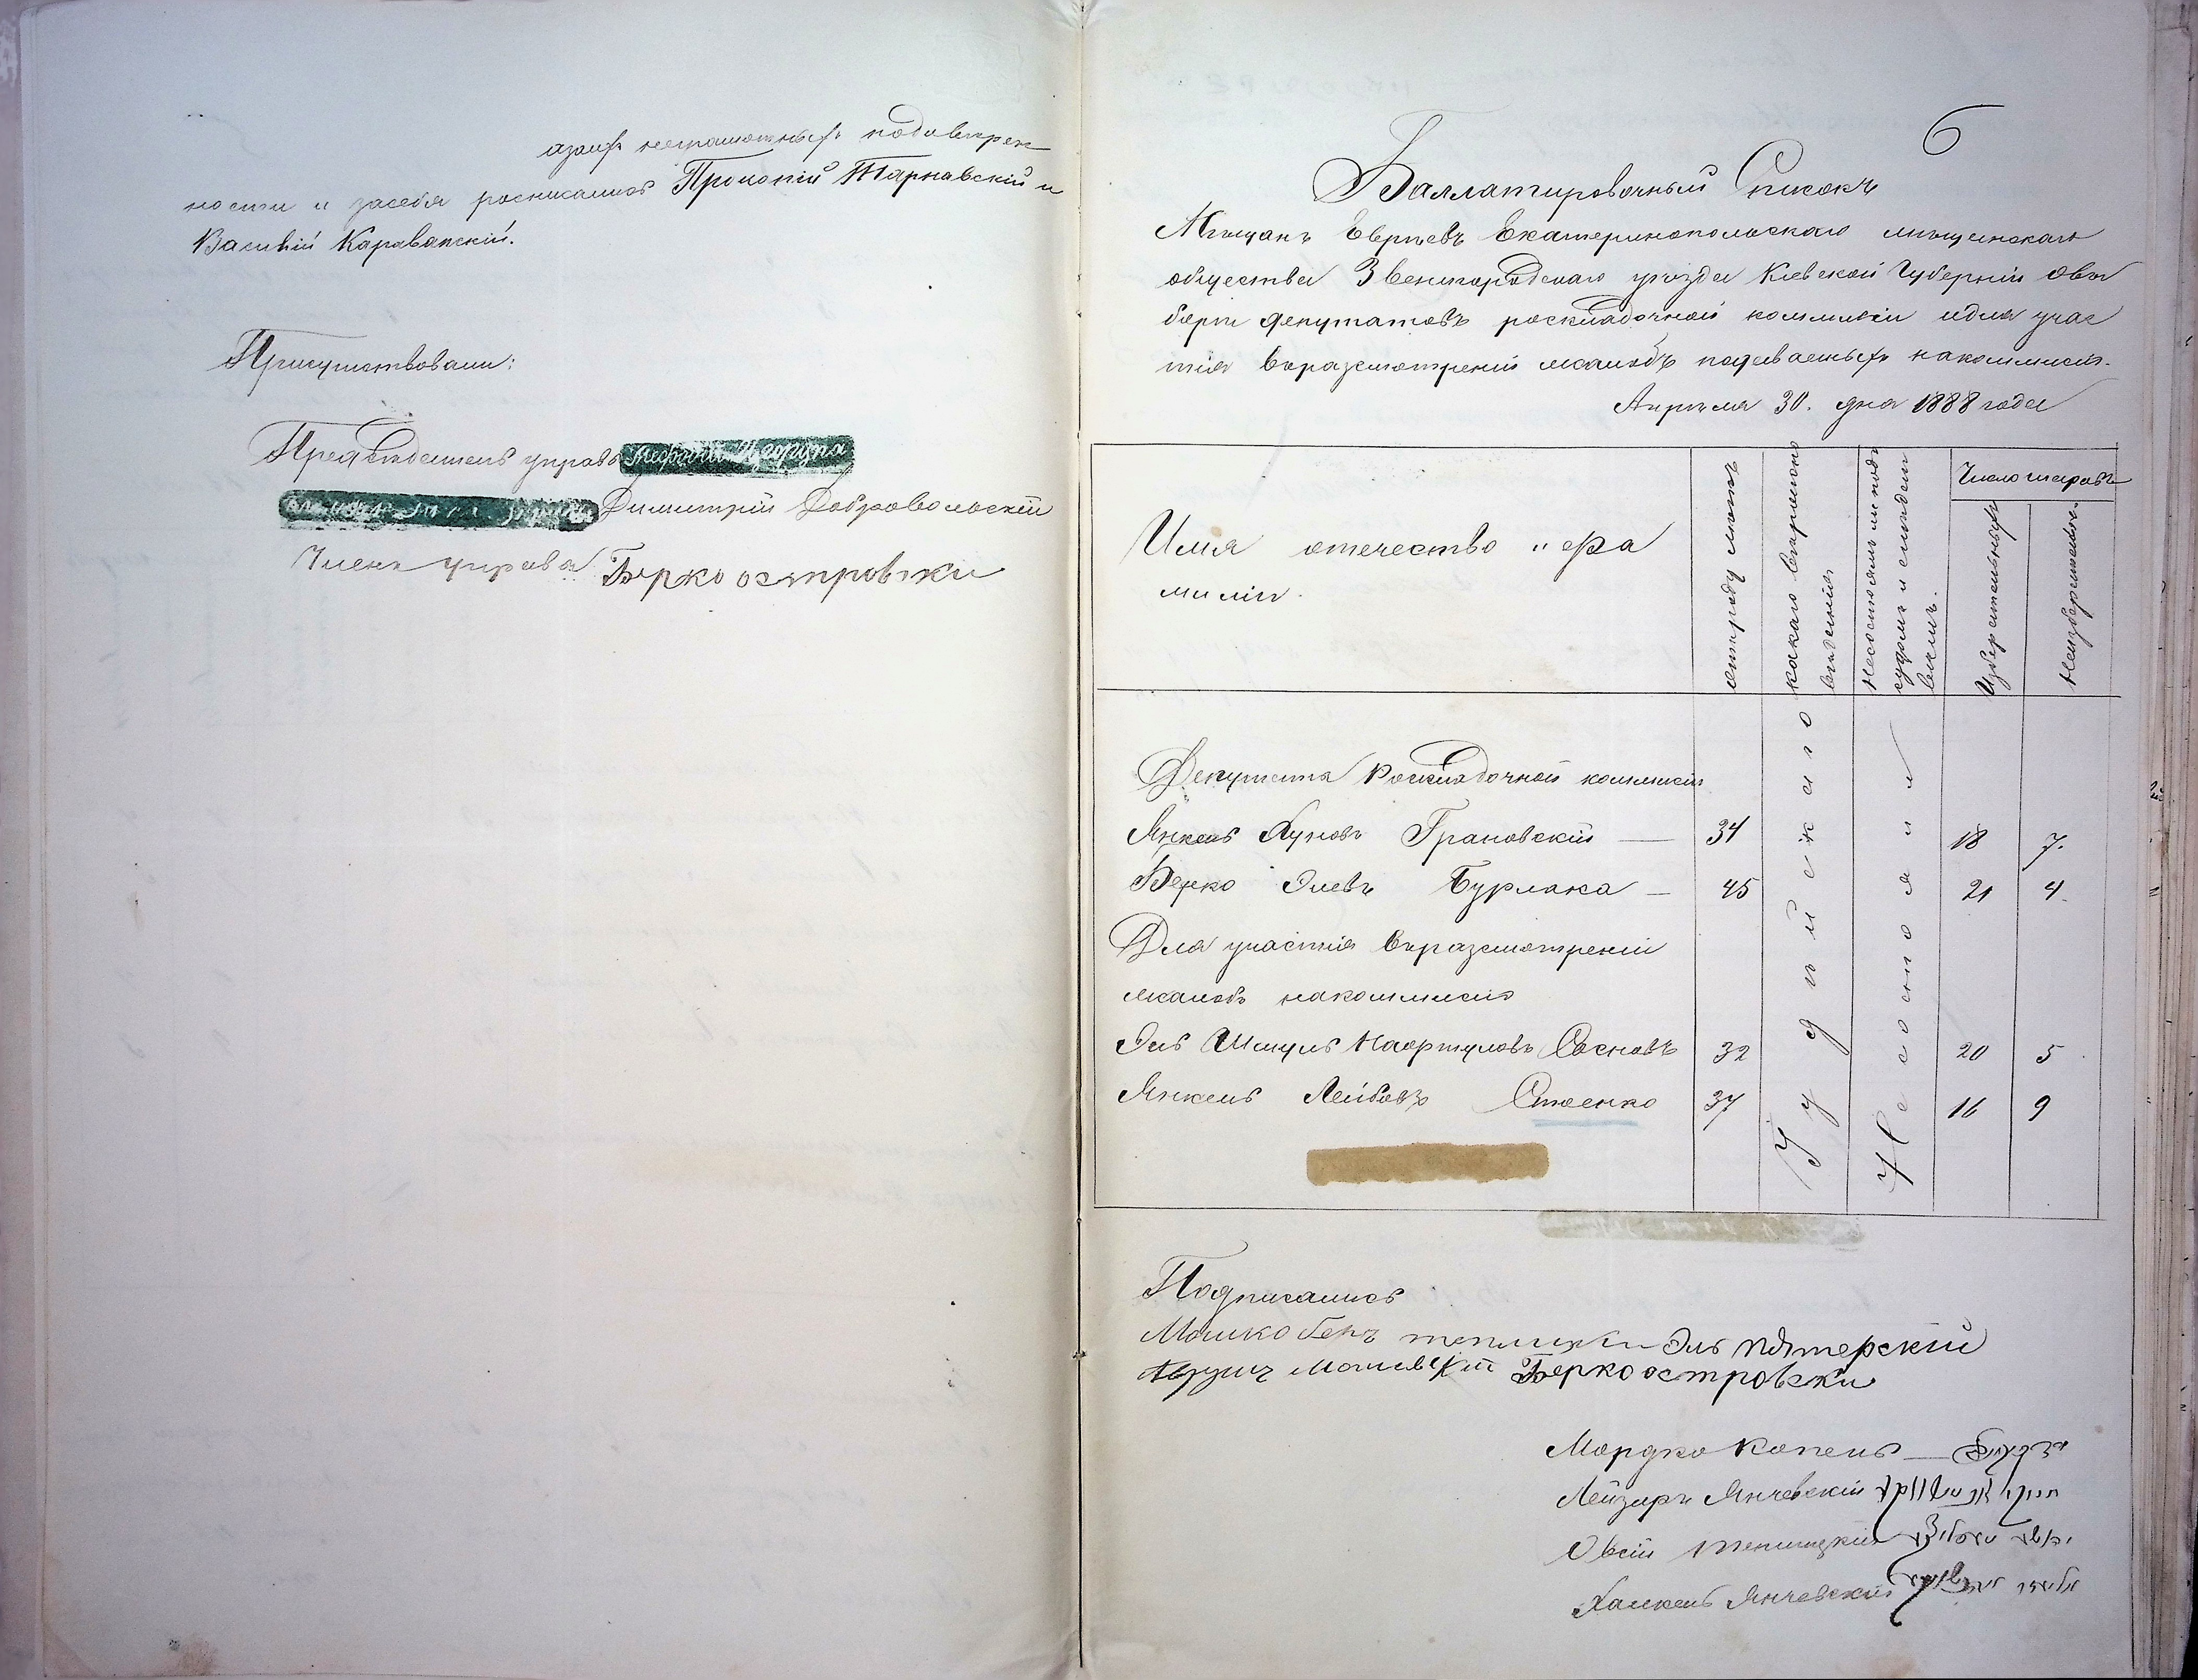 а за неграмотныхъ подовѣрен
ности и засебя росписались Прокопій Тарнавскій и
Василій Караванскій.
Присутствовали:
Предсѣдатель управы
Димитрій Добровольскій
Членъ управы Берко островски
6
Баллатировочный Списокъ
Мѣщанъ Евреевъ Екатеринопольскаго мѣщанскаго
общества Звенигородскаго уѣзда Кіевской Губерніи овы
борѣ депутатовъ роскладочной коммисіи идля учас
тія вразсмотреніи жалобъ подаваемыхъ накоммисію.
Апрѣля 30. дня 1888 года
Имя отечество и фа
миліи.
отроду лѣтъ
какаго вѣроиспо
вѣданія
несостоялъ ли подъ
судомъ и слѣдст
віемъ.
Число шаровъ
Избирательныхъ
Неизбирательн.
Депутата Роскладочной коммисіи
Янкель Хуновъ Грановскій — 34 18 7.
Берко Элевъ Бурлака — 45 21 4.
Для участія вразсмотреніи
жалобъ накоммисію
Эль Шмуль Сосновъ 32 20 5
Янкель Лейбовъ Стоенко 37 16 9
Іудейскаго
Несостояли
Подписались
Мошко беръ теплицки Эль Пятерскій
Берко островски
Мордко Копель —
Лейзеръ Янчевскій
Овсій Теплицкій
Хаскель Янчевскій